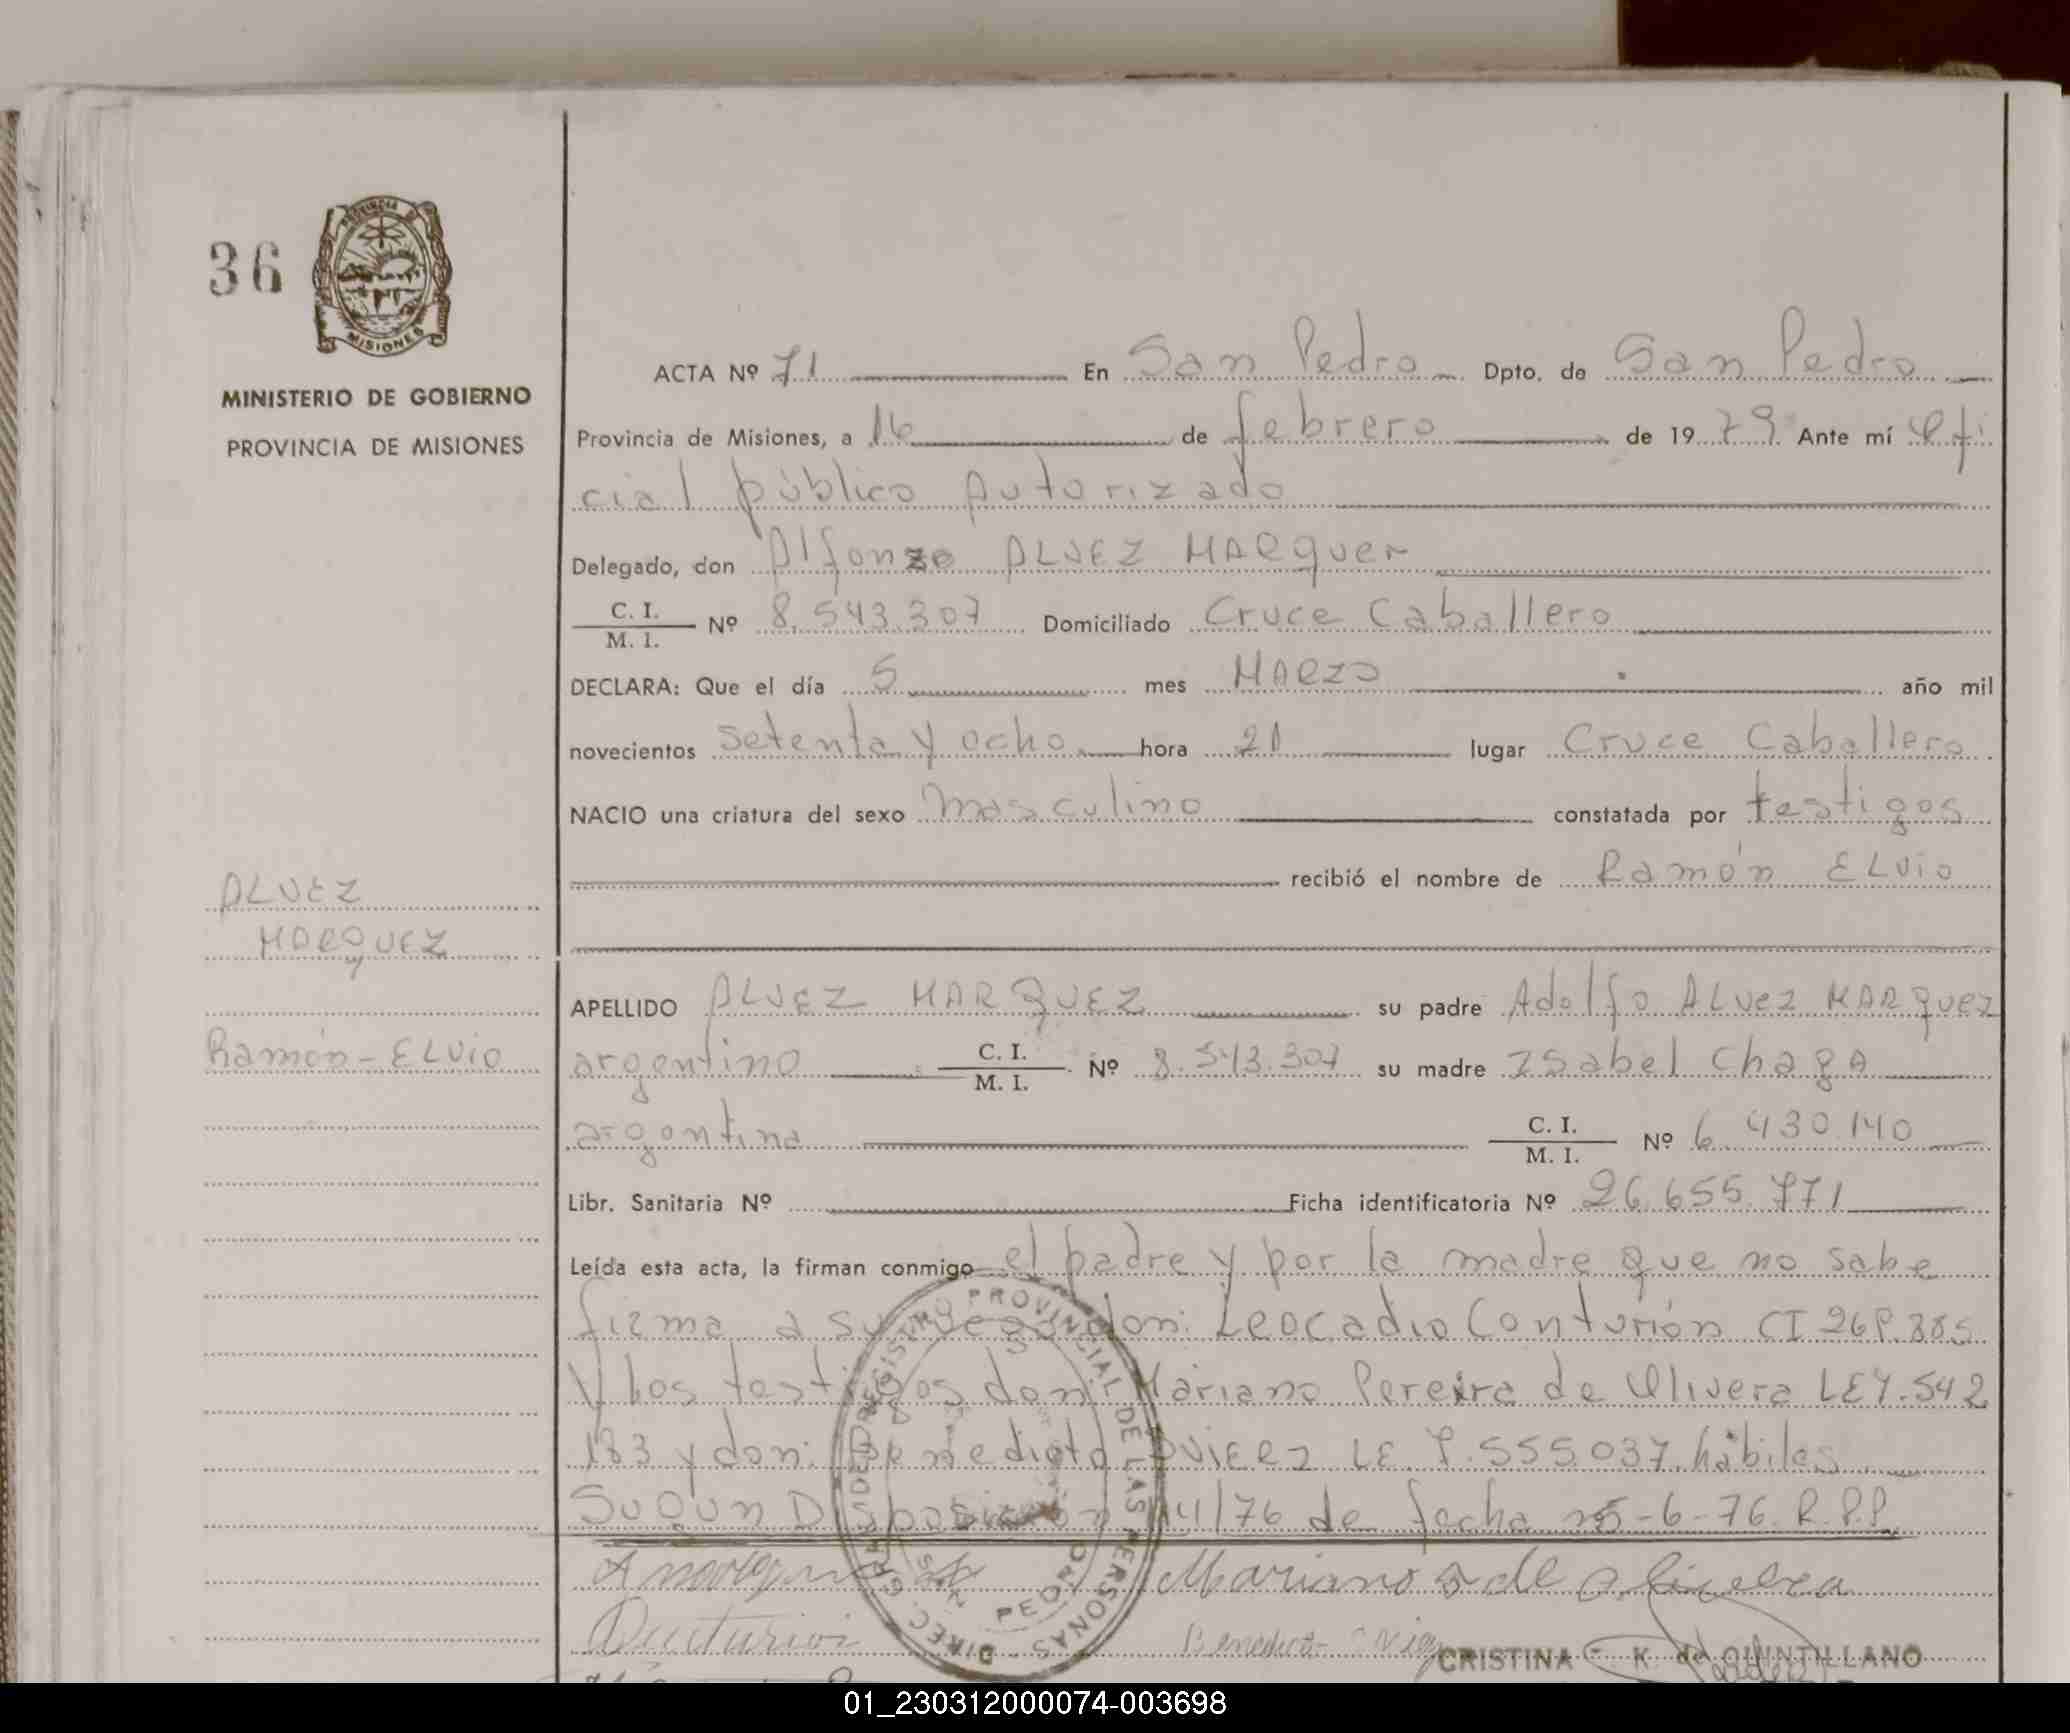 36
PROVINCIA DE
MISIONES
MINISTERIO DE GOBIERNO
PROVINCIA DE MISIONES
ALVEZ
MARQUEZ
Ramón - ELVIO
ACTA Nº 71 En San Pedro Dpto. de San Pedro
Provincia de Misiones, a 16 de febrero de 1979 Ante mí Ofi
cial público Autorizado
Delegado, don Alfonzo ALVEZ MARquez
C. I. / M. I. Nº 8.543.307 Domiciliado Cruce Caballero
DECLARA: Que el día 5 mes MARZO año mil
novecientos setenta y ocho hora 21 lugar Cruce Caballero
NACIO una criatura del sexo masculino constatada por testigos
recibió el nombre de Ramón ELVIO
APELLIDO ALVEZ MARQUEZ su padre Adolfo ALVEZ MARquez
argentino C. I. / M. I. Nº 8.543.307 su madre ISabel ChagA
argentina C. I. / M. I. Nº 6.430.140
Libr. Sanitaria Nº Ficha identificatoria Nº 26.655.771
Leída esta acta, la firman conmigo el padre y por la madre que no sabe
firma a su ruego don: Leocadio Centurión CI 268.385
y los testigos don Mariano Pereira de Olivera LE 7.542
183 y don: Benedicto LE 7.555.037 hábiles
Segun Disposición 14/76 de fecha 6-76. R.P.P.
Mariano de Olivera
CRISTINA K. de QUINTILLANO
DIREC. GRAL. DEL REGISTRO PROVINCIAL DE LAS PERSONAS
SAN PEDRO
01_230312000074-003698